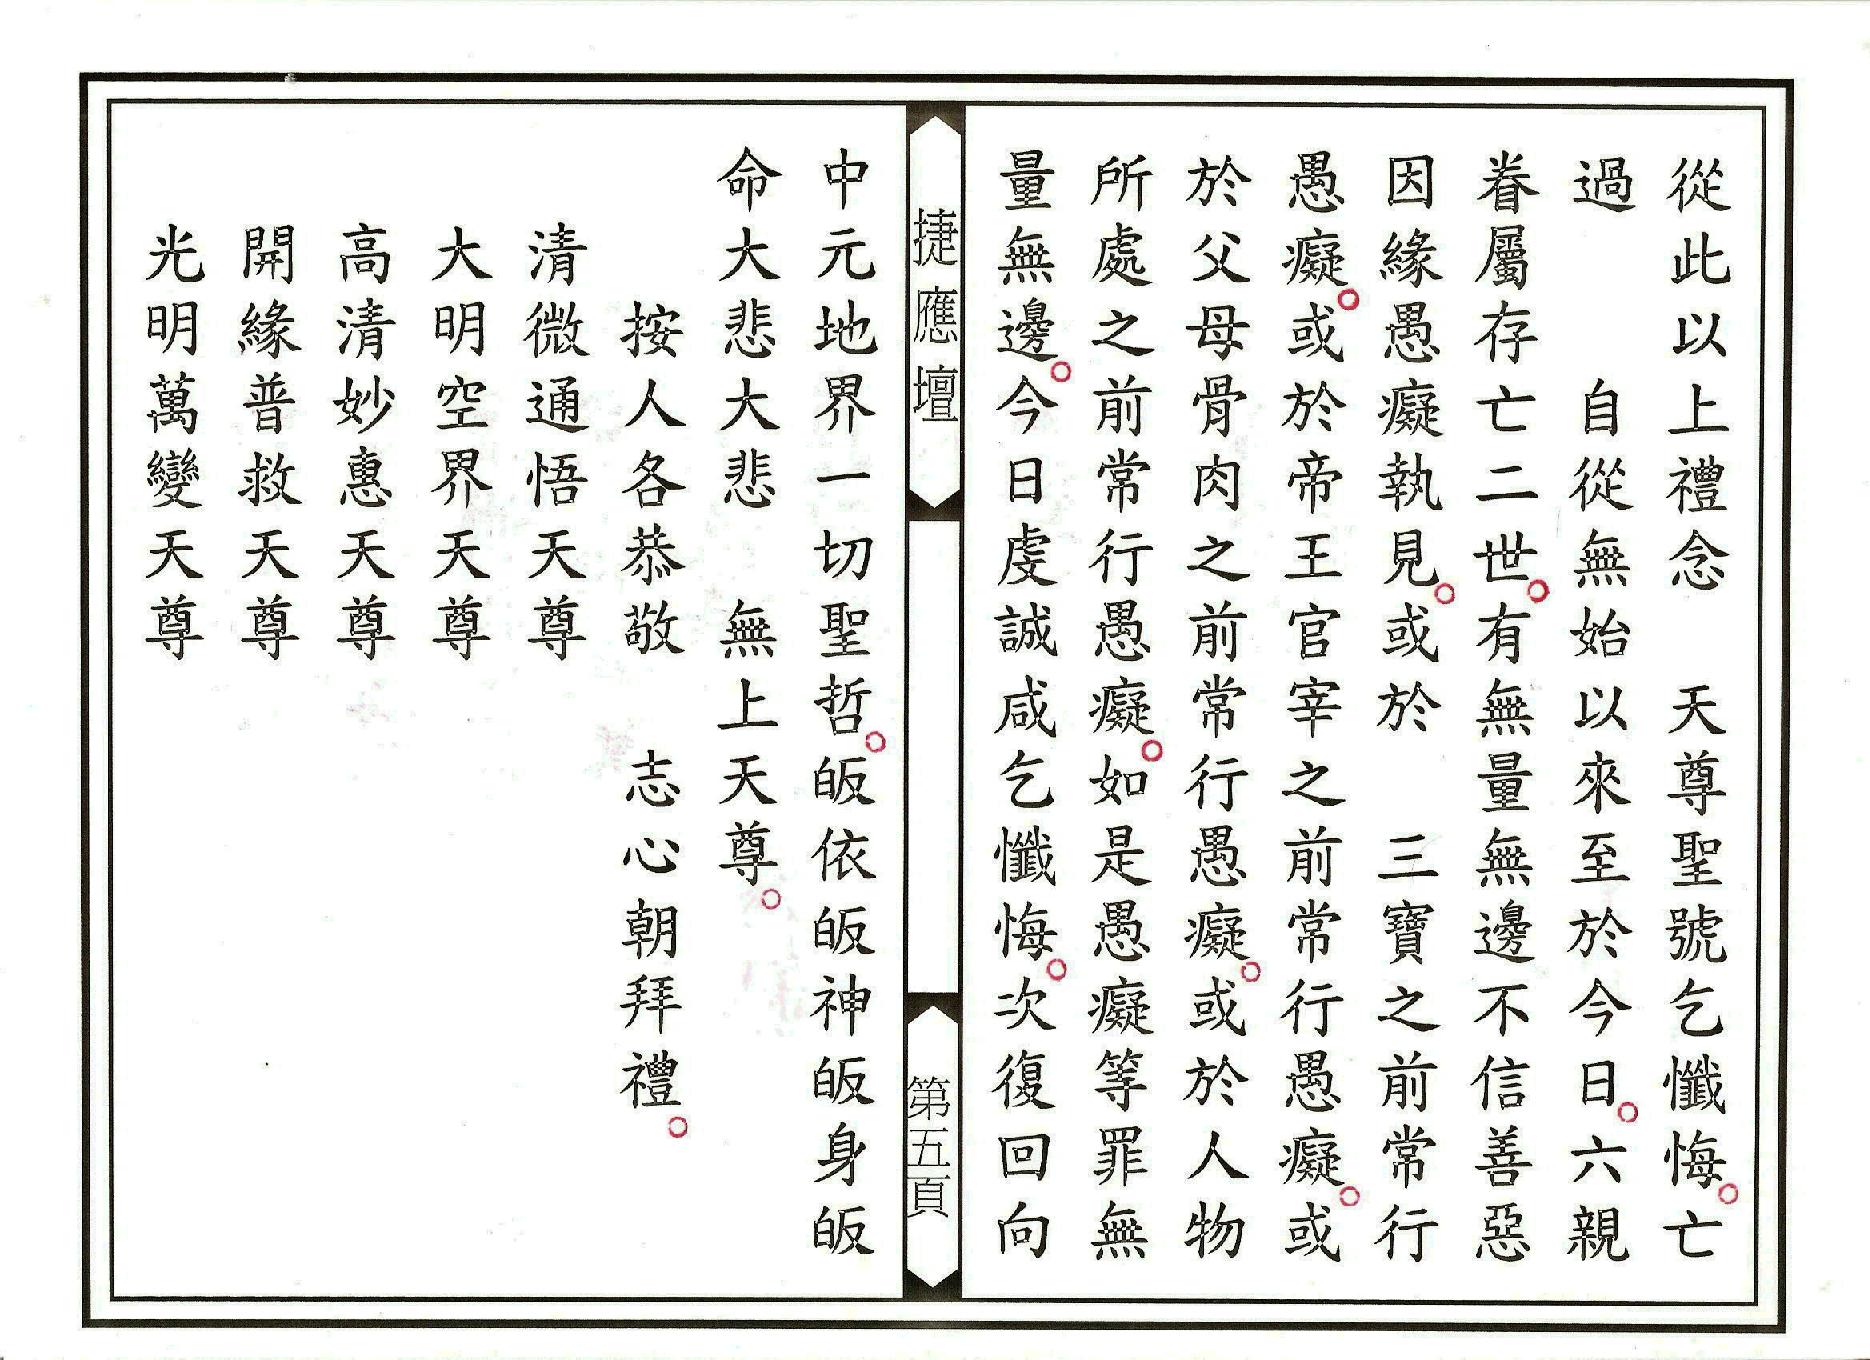 從此以上禮念　天尊聖號乞懺悔。亡
過　　自從無始以來至於今日。六親
眷屬存亡二世。有無量無邊不信善惡
因緣愚癡執見。或於　三寶之前常行
愚癡。或於帝王官宰之前常行愚癡。或
於父母骨肉之前常行愚癡。或於人物
所處之前常行愚癡。如是愚癡等罪無
量無邊。今日虔誠咸乞懺悔。次復回向
捷應壇
第五頁
中元地界一切聖哲。皈依皈神皈身皈
命大悲大悲　無上天尊。
按人各恭敬　志心朝拜禮。
清微通悟天尊
大明空界天尊
高清妙惠天尊
開緣普救天尊
光明萬變天尊